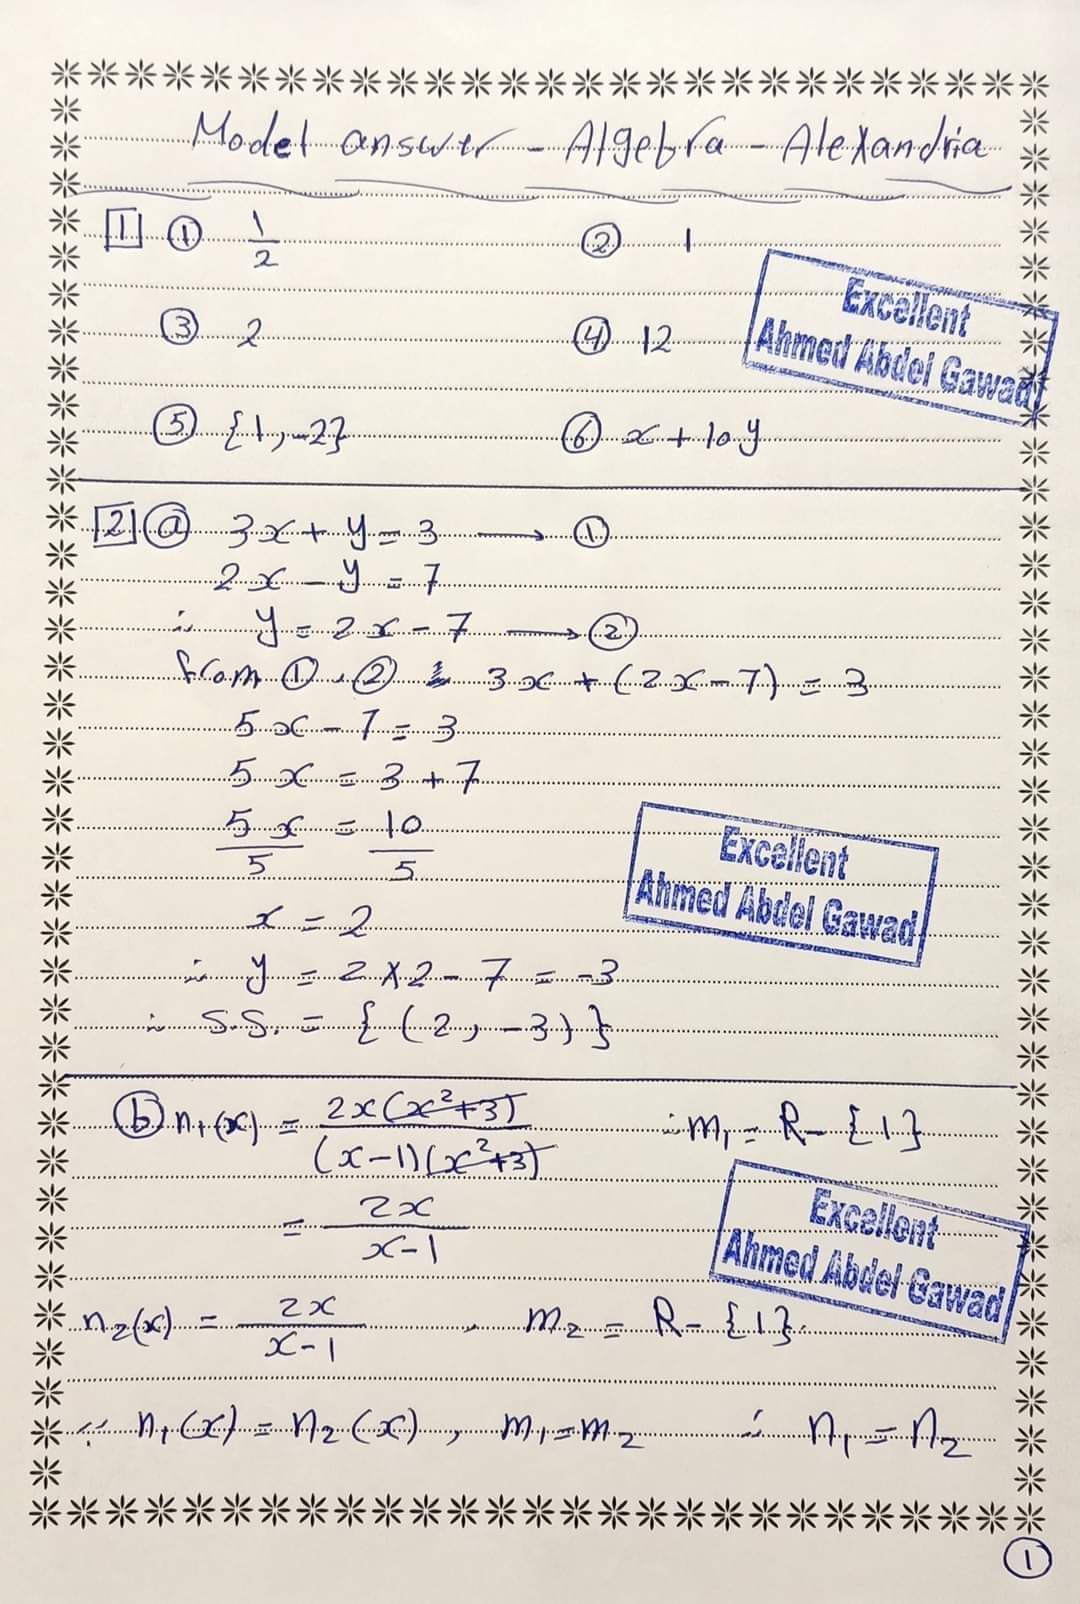 Model answer - Algebra - Alexandria
1 ① 1/2 ② 1
③ 2 ④ 12
⑤ {1, -2} ⑥ x + 10y
Excellent
Ahmed Abdel Gawad
2 ⓐ 3x + y = 3 ⟶ ①
2x - y = 7
∴ y = 2x - 7 ⟶ ②
from ①, ② 3x + (2x - 7) = 3
5x - 7 = 3
5x = 3 + 7
5x/5 = 10/5
x = 2
Excellent
Ahmed Abdel Gawad
∴ y = 2 × 2 - 7 = -3
∴ S.S. = {(2, -3)}
ⓑ n₁(x) = 2x(x²+3)/(x-1)(x²+3) ∴ m₁ = R - {1}
= 2x/x-1
Excellent
Ahmed Abdel Gawad
n₂(x) = 2x/x-1 , m₂ = R - {1}
∵ n₁(x) = n₂(x), m₁ = m₂ ∴ n₁ = n₂
①